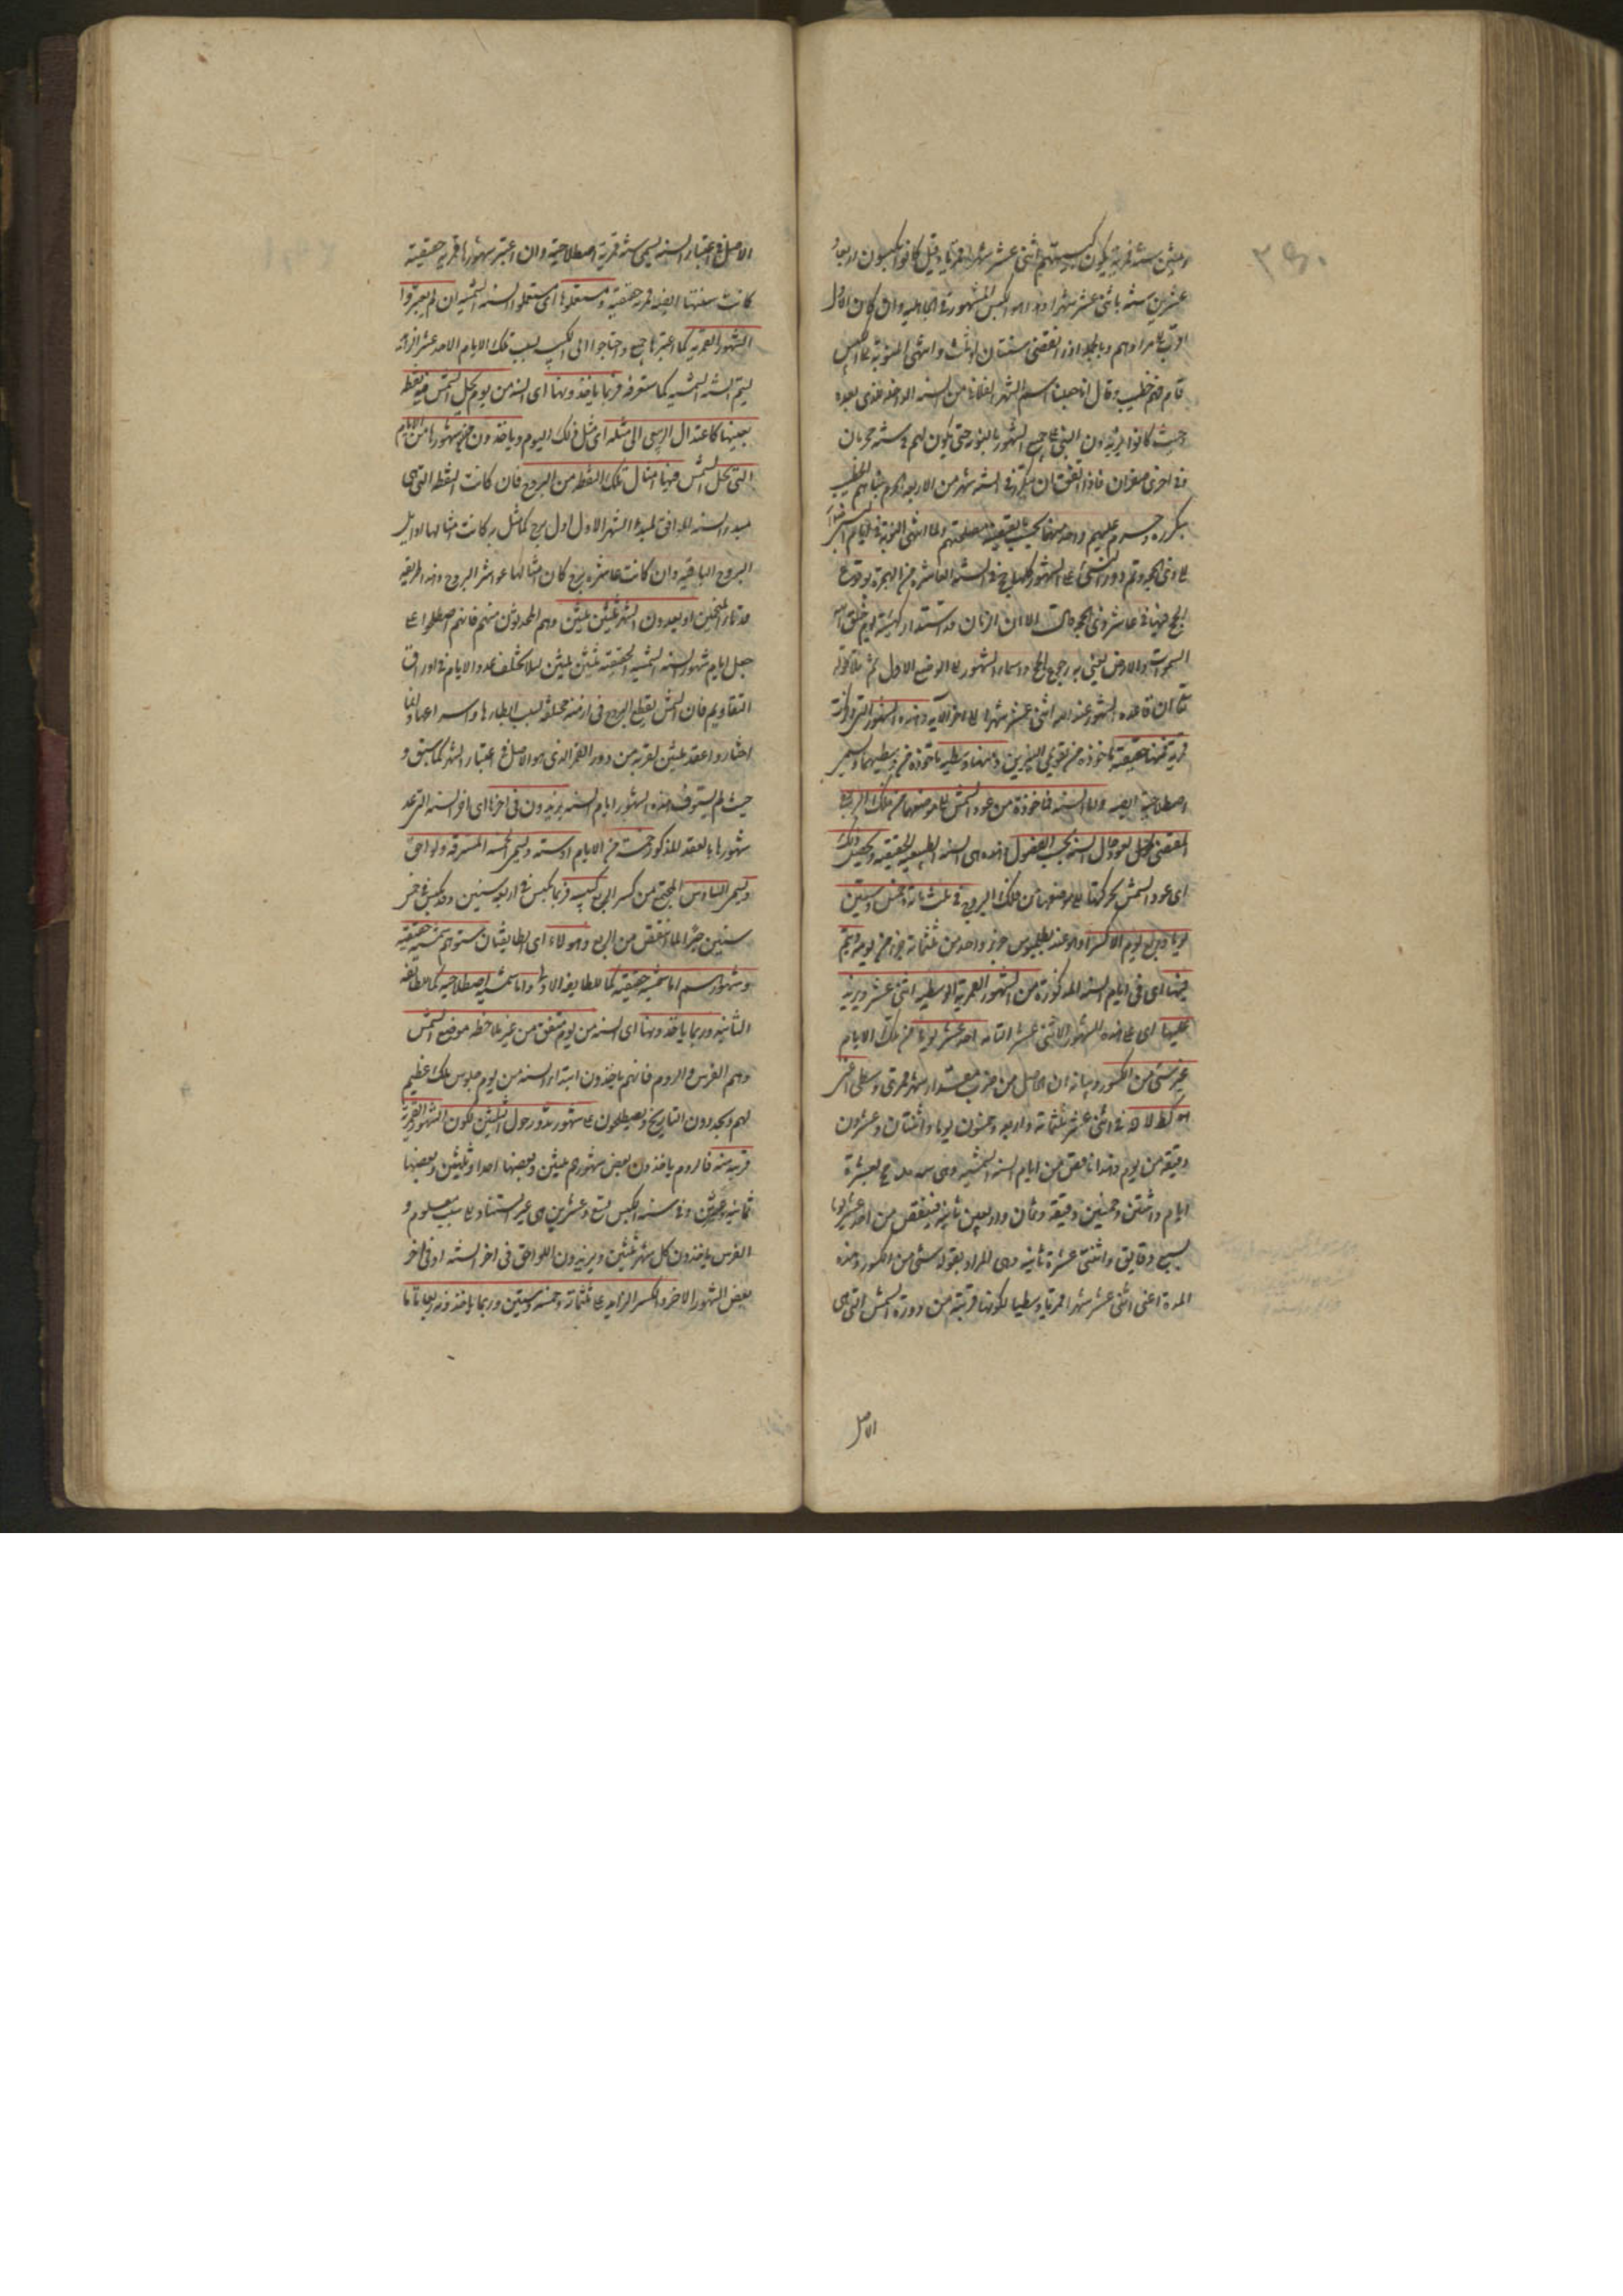 وعشرين سنة قمرية يكون كبيستهم اثنى عشر شهرا قمريا وقيل كانوا يكبسون اربعة
عشرين سنة باثنى عشر شهرا وهذا هو الكبس المشهور فى الجاهلية وان كان الاول
اقرب الى مرادهم وبالجملة اذا انقضى سنتان او ثلث وانتهى النوبة الى الكبس
قام فيهم خطيب وقال انا جعلنا اسم الشهر الفلانى من السنة الداخلة للذى بعده
وحيث كانوا يزيدون النسئ على جميع الشهور بالنوبة حتى يكون لهم فى سنة محرمان
وفى اخرى صفران فاذا اتفق ان يتكرر فى السنة شهر من الاربعة الحرم نبأهم الخطيب
بتكرره وحرم عليهم واحدا منهما بحسب ما يقتضيه مصلحتهم ولما انتهى النوبة فى ايام النبى
على ذى الحجة وتم دور النسئ على الشهور كلها حج فى السنة العاشرة من الهجرة لوقوع
الحج فيها فى عاشر ذى الحجة وقال الا ان الزمان قد استدار كهيئته يوم خلق الله
السموات والارض يعنى به رجوع الحج واسماء الشهور الى الوضع الاول ثم تلا قوله
تعالى ان عدة الشهور عند الله اثنى عشر شهرا الى اخر الآية وهذه الشهور التى ذكرت
قمرية فمنها حقيقية مأخوذة من تقويمى النيرين ومنها وسطية مأخوذة من وسطيهما ويسمى
اصطلاحية ايضا واما السنة فمأخوذة من عود الشمس الى موضعها من فلك البروج
المقتضى لعود حال السنة بحسب الفصول وهذه هى السنة الطبيعية الحقيقية ويحصل ذلك
اى عود الشمس بحركتها الى موضعها من فلك البروج فى ثلثمائة وخمس وستين
يوما وربع يوم الا كسرا وهو عند بطلميوس جزء واحد من ثلثمائة جزء من يوم ويتم
فيها اى فى ايام السنة المذكورة من الشهور القمرية الوسطية اثنى عشر ويزيد
عليها اى على هذه الشهور الاثنى عشر التامة احد عشر يوما من تلك الايام
غير شئ من الكسور وبيانه ان الحاصل من ضرب مقدار شهر قمرى وسطى اعنى
فى اثنى عشر ثلثمائة واربعة وخمسون يوما واثنتان وعشرون
دقيقة من يوم وهذا ناقص من ايام السنة الشمسية وهى بعشرة
ايام واثنتين وخمسين دقيقة وثمان واربعين ثانية فينقص من احد عشر يوما
سبع دقايق واثنتى عشرة ثانية وهى المراد بقوله شئ من الكسور وهذه
المدة اعنى اثنى عشر شهرا قمريا وسطيا لكونها قريبة من دورة الشمس التى هى
الاصل
الاصل فى اعتبار السنة يسمى سنة قمرية اصطلاحية وان اعتبر شهورها قمرية حقيقية
كانت سنتها ايضا قمرية حقيقية ومستعملوها اى مستعملوا السنة الشمسية ان لم يعتبروا
الشهور القمرية كما اعتبرها واحتاجوا الى الكبس بسبب تلك الايام الاحد عشر الزائدة
ليتم السنة الشمسية كما ستعرفه فربما ياخذونها اى السنة من يوم يحل الشمس فيه نقطة
بعينها كاعتدال الربيعى الى مثله اى مثل ذلك اليوم وياخذون شهورها من الايام
التى تحل الشمس فيها امثال تلك النقطة من البروج فان كانت النقطة التى هى
مبدء السنة الموافق لمبدء الشهر الاول اول برج كانت امثالها اوايل
البروج الباقية وان كانت عاشرة برج كان امثالها عواشر البروج وهذه طريقة
قدماء المنجمين او يعدون الشهر ثلثين ثلثين وهم المحدثون منهم فانهم اصطلحوا على
جعل ايام شهور السنة الشمسية الحقيقية ثلثين ثلثين لئلا يختلف عدد الايام فى اوراق
التقاويم فان الشمس يقطع البروج فى ازمنة مختلفة بسبب ابطائها واسراعها وانما
اختاروا عقد ثلثين لقربه من دور القمر الذى هو الاصل فى اعتبار الشهر كما سبق و
حيث لم يستوف هذه الشهور ايام السنة يزيدون فى اخرها اى اخر السنة التى عد
شهورها بالعقد المذكور خمسة من الايام او ستة ويسمى الخمسة المسترقة ولواحق
ويسمى السادس المجتمع من كسر الربع كبيسة فربما يكبس فى اربع سنين وقد يكبس فى خمس
سنين جبرا لما نقص من الربع وهؤلاء اى الطايفتان سنوهم شمسية حقيقية
وشهورهم اما شمسية حقيقية كما للطايفة الاولى واما شمسية اصطلاحية كما للطايفة
الثانية وربما ياخذونها اى السنة من يوم يتفق من غير ملاحظة موضع الشمس
وهم الفرس والروم فانهم ياخذون ابتداء السنة من يوم جلوس ملك عظيم
لهم ويجددون التاريخ ويصطلحون على شهور تدور حول الثلثين لكون الشهور القمرية
قريبة منه فالروم ياخذون بعض شهورهم ثلثين وبعضها احدا وثلثين وبعضها
ثمانية وعشرين وفى سنة الكبس تسع وعشرين من غير استناد الى سبب معلوم و
الفرس ياخذون كل شهر ثلثين ويزيدون اللواحق فى اخر السنة او فى اخر
بعض الشهور الاخر والكسر الزايد على ثلثمائة وخمسة وستين وربما ياخذونه ربعا تاما